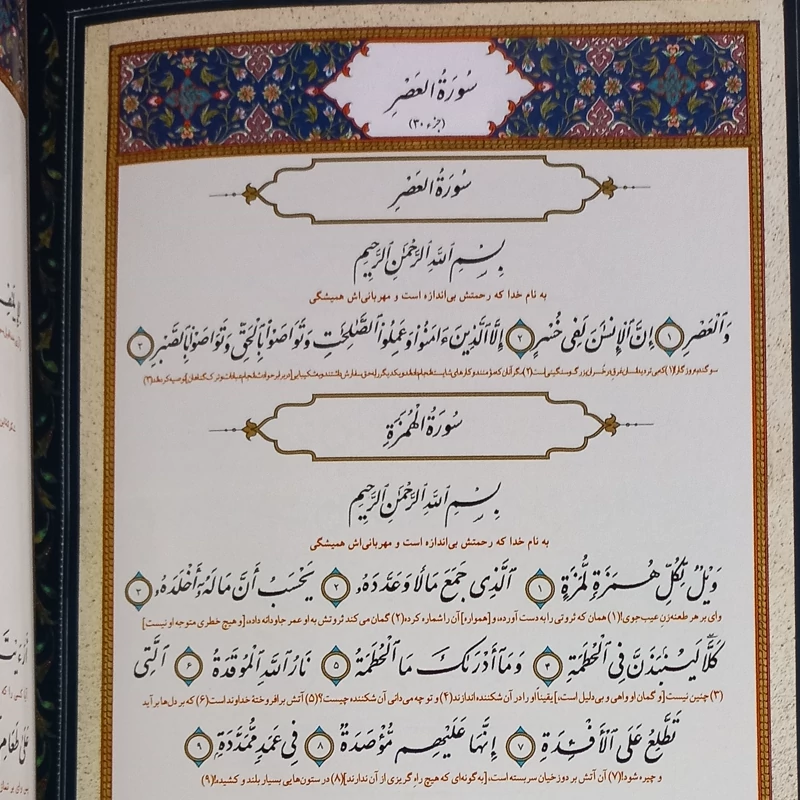 سُورَةُ العَصْرِ
(جزء ۳۰)
سُورَةُ العَصْرِ
بِسْمِ ٱللَّهِ ٱلرَّحْمَٰنِ ٱلرَّحِيمِ
به نام خدا که رحمتش بی‌اندازه است و مهربانی‌اش همیشگی
وَٱلْعَصْرِ ۱ إِنَّ ٱلْإِنسَٰنَ لَفِى خُسْرٍ ۲ إِلَّا ٱلَّذِينَ ءَامَنُوا۟ وَعَمِلُوا۟ ٱلصَّٰلِحَٰتِ وَتَوَاصَوْا۟ بِٱلْحَقِّ وَتَوَاصَوْا۟ بِٱلصَّبْرِ ۳
سوگند به روزگار(۱)
سُورَةُ الْهُمَزَةِ
بِسْمِ ٱللَّهِ ٱلرَّحْمَٰنِ ٱلرَّحِيمِ
به نام خدا که رحمتش بی‌اندازه است و مهربانی‌اش همیشگی
وَيْلٌ لِّكُلِّ هُمَزَةٍ لُّمَزَةٍ ۱ ٱلَّذِى جَمَعَ مَالًا وَعَدَّدَهُۥ ۲ يَحْسَبُ أَنَّ مَالَهُۥٓ أَخْلَدَهُۥ ۳
وای بر هر طعنه‌زنِ عیب‌جوی!(۱) همان که ثروتی را به دست آورده، و [همواره] آن را شماره کرده(۲) گمان می‌کند ثروتش به او عمر جاودانه داده، [و هیچ خطری متوجه او نیست]
كَلَّا لَيُنۢبَذَنَّ فِى ٱلْحُطَمَةِ ۴ وَمَآ أَدْرَىٰكَ مَا ٱلْحُطَمَةُ ۵ نَارُ ٱللَّهِ ٱلْمُوقَدَةُ ۶ ٱلَّتِى
(۳) چنین نیست [و گمان او واهی و بی‌دلیل است،] یقیناً او را در آن شکننده اندازند(۴) و تو چه می‌دانی آن شکننده چیست؟(۵) آتش برافروختهٔ خداوند است(۶) که بر دل‌ها برآید
تَطَّلِعُ عَلَى ٱلْأَفْـِٔدَةِ ۷ إِنَّهَا عَلَيْهِم مُّؤْصَدَةٌ ۸ فِى عَمَدٍ مُّمَدَّدَةٍۭ ۹
و چیره شود!(۷) آن آتش بر دوزخیان سربسته است، [به گونه‌ای که هیچ راه گریزی از آن ندارند](۸) در ستون‌هایی بسیار بلند و کشیده!(۹)